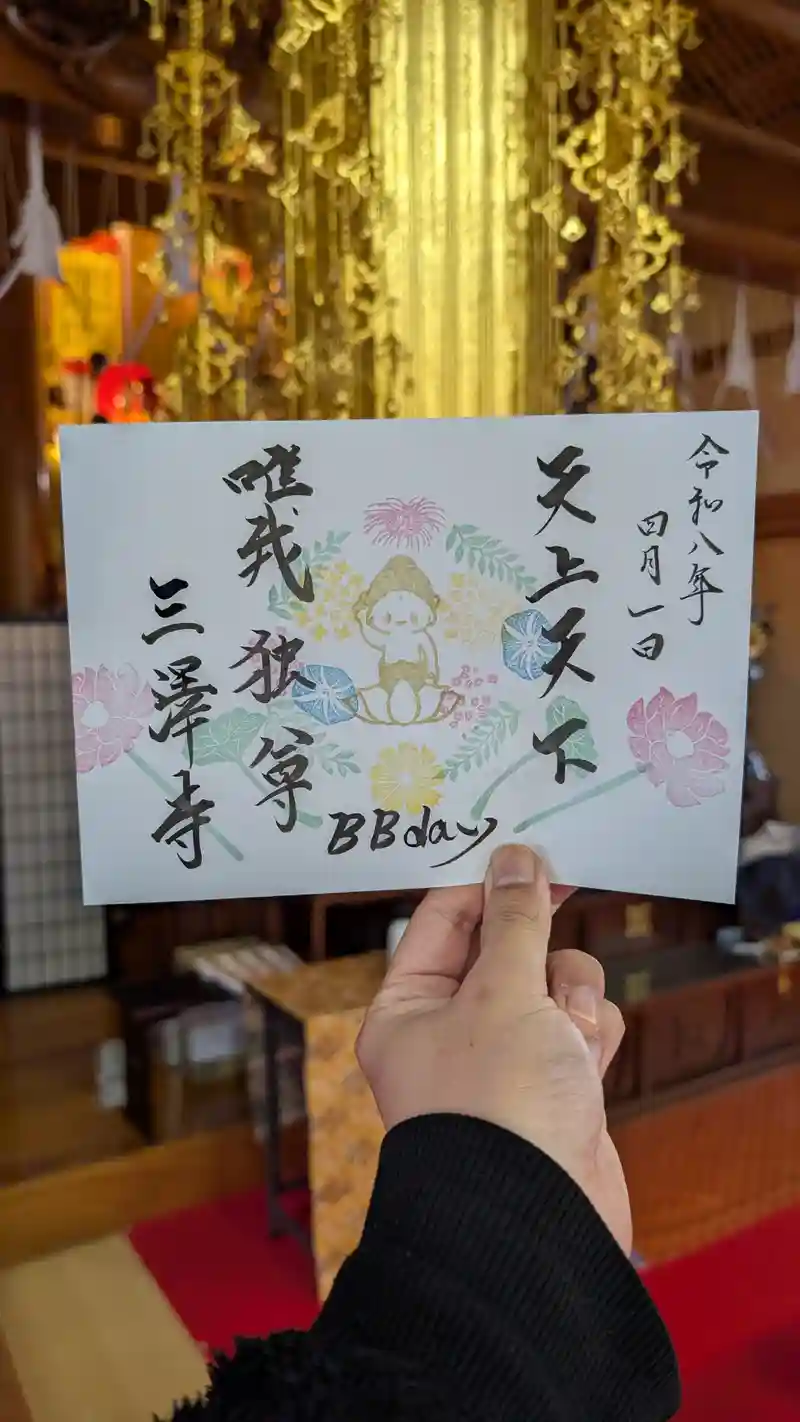 令和八年
四月一日
天上天下
唯我独尊
三澤寺
BBday